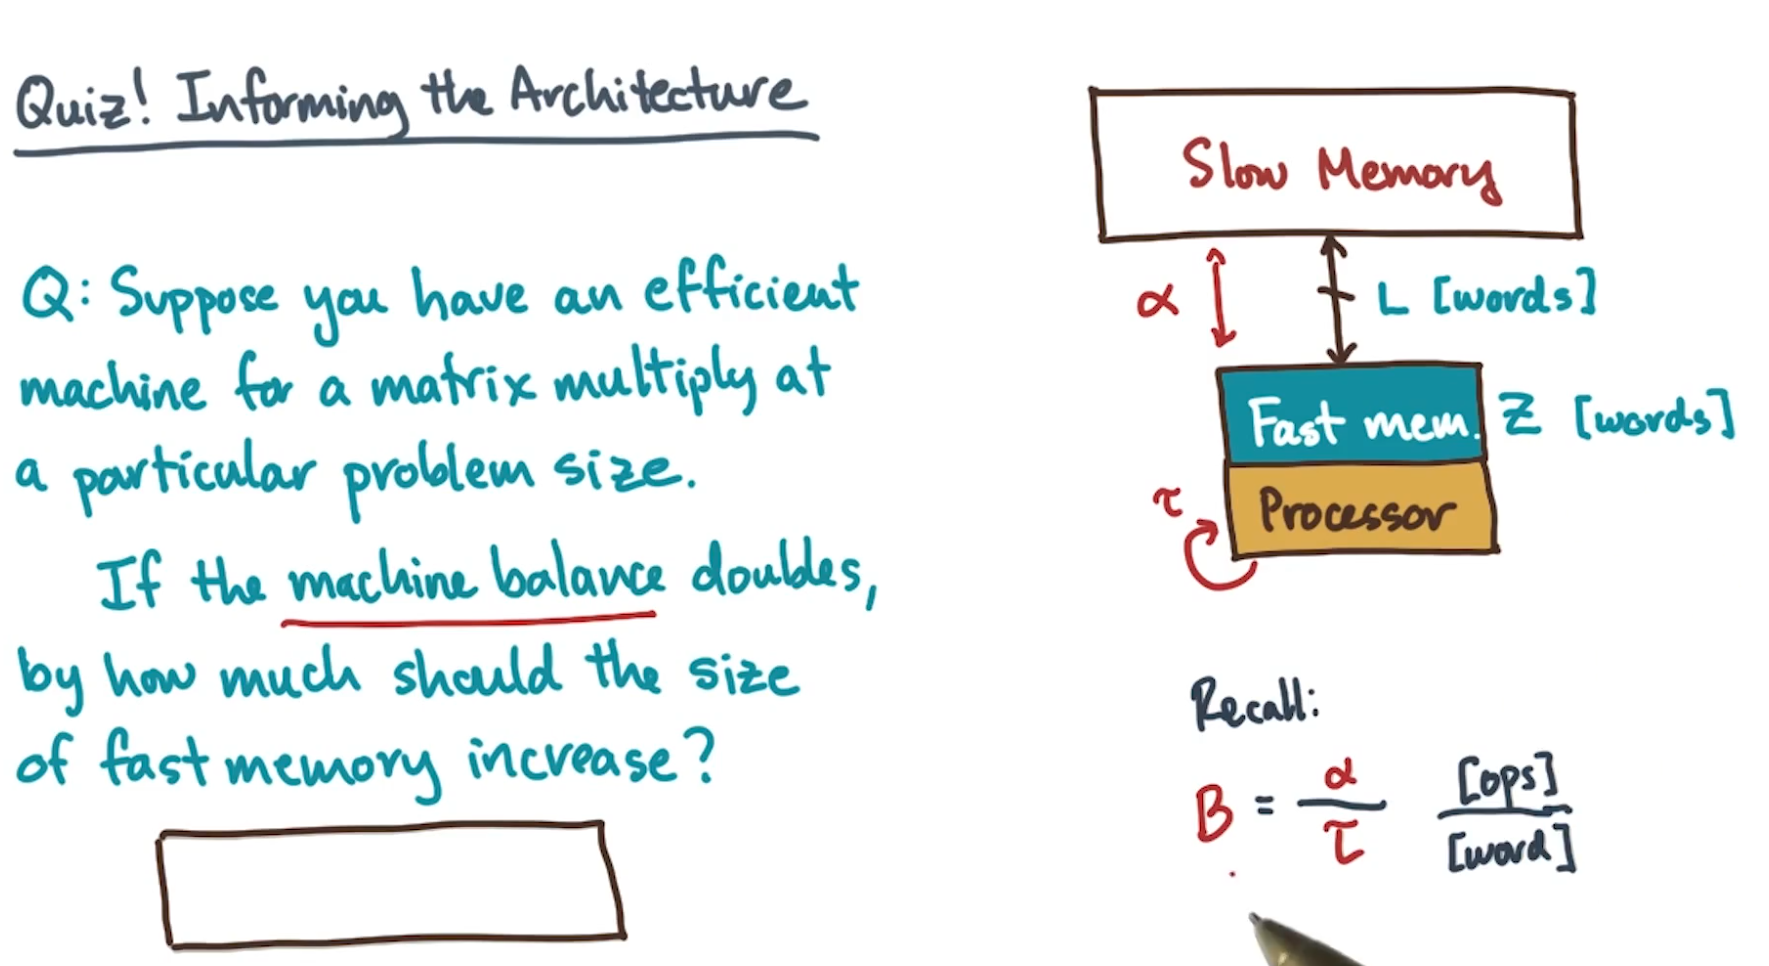 Quiz! Informing the Architecture
Q: Suppose you have an efficient
machine for a matrix multiply at
a particular problem size.
If the machine balance doubles,
by how much should the size
of fast memory increase?
Slow Memory
α
L [words]
Fast mem.
Z [words]
τ
Processor
Recall:
B = α/τ [ops]/[word]